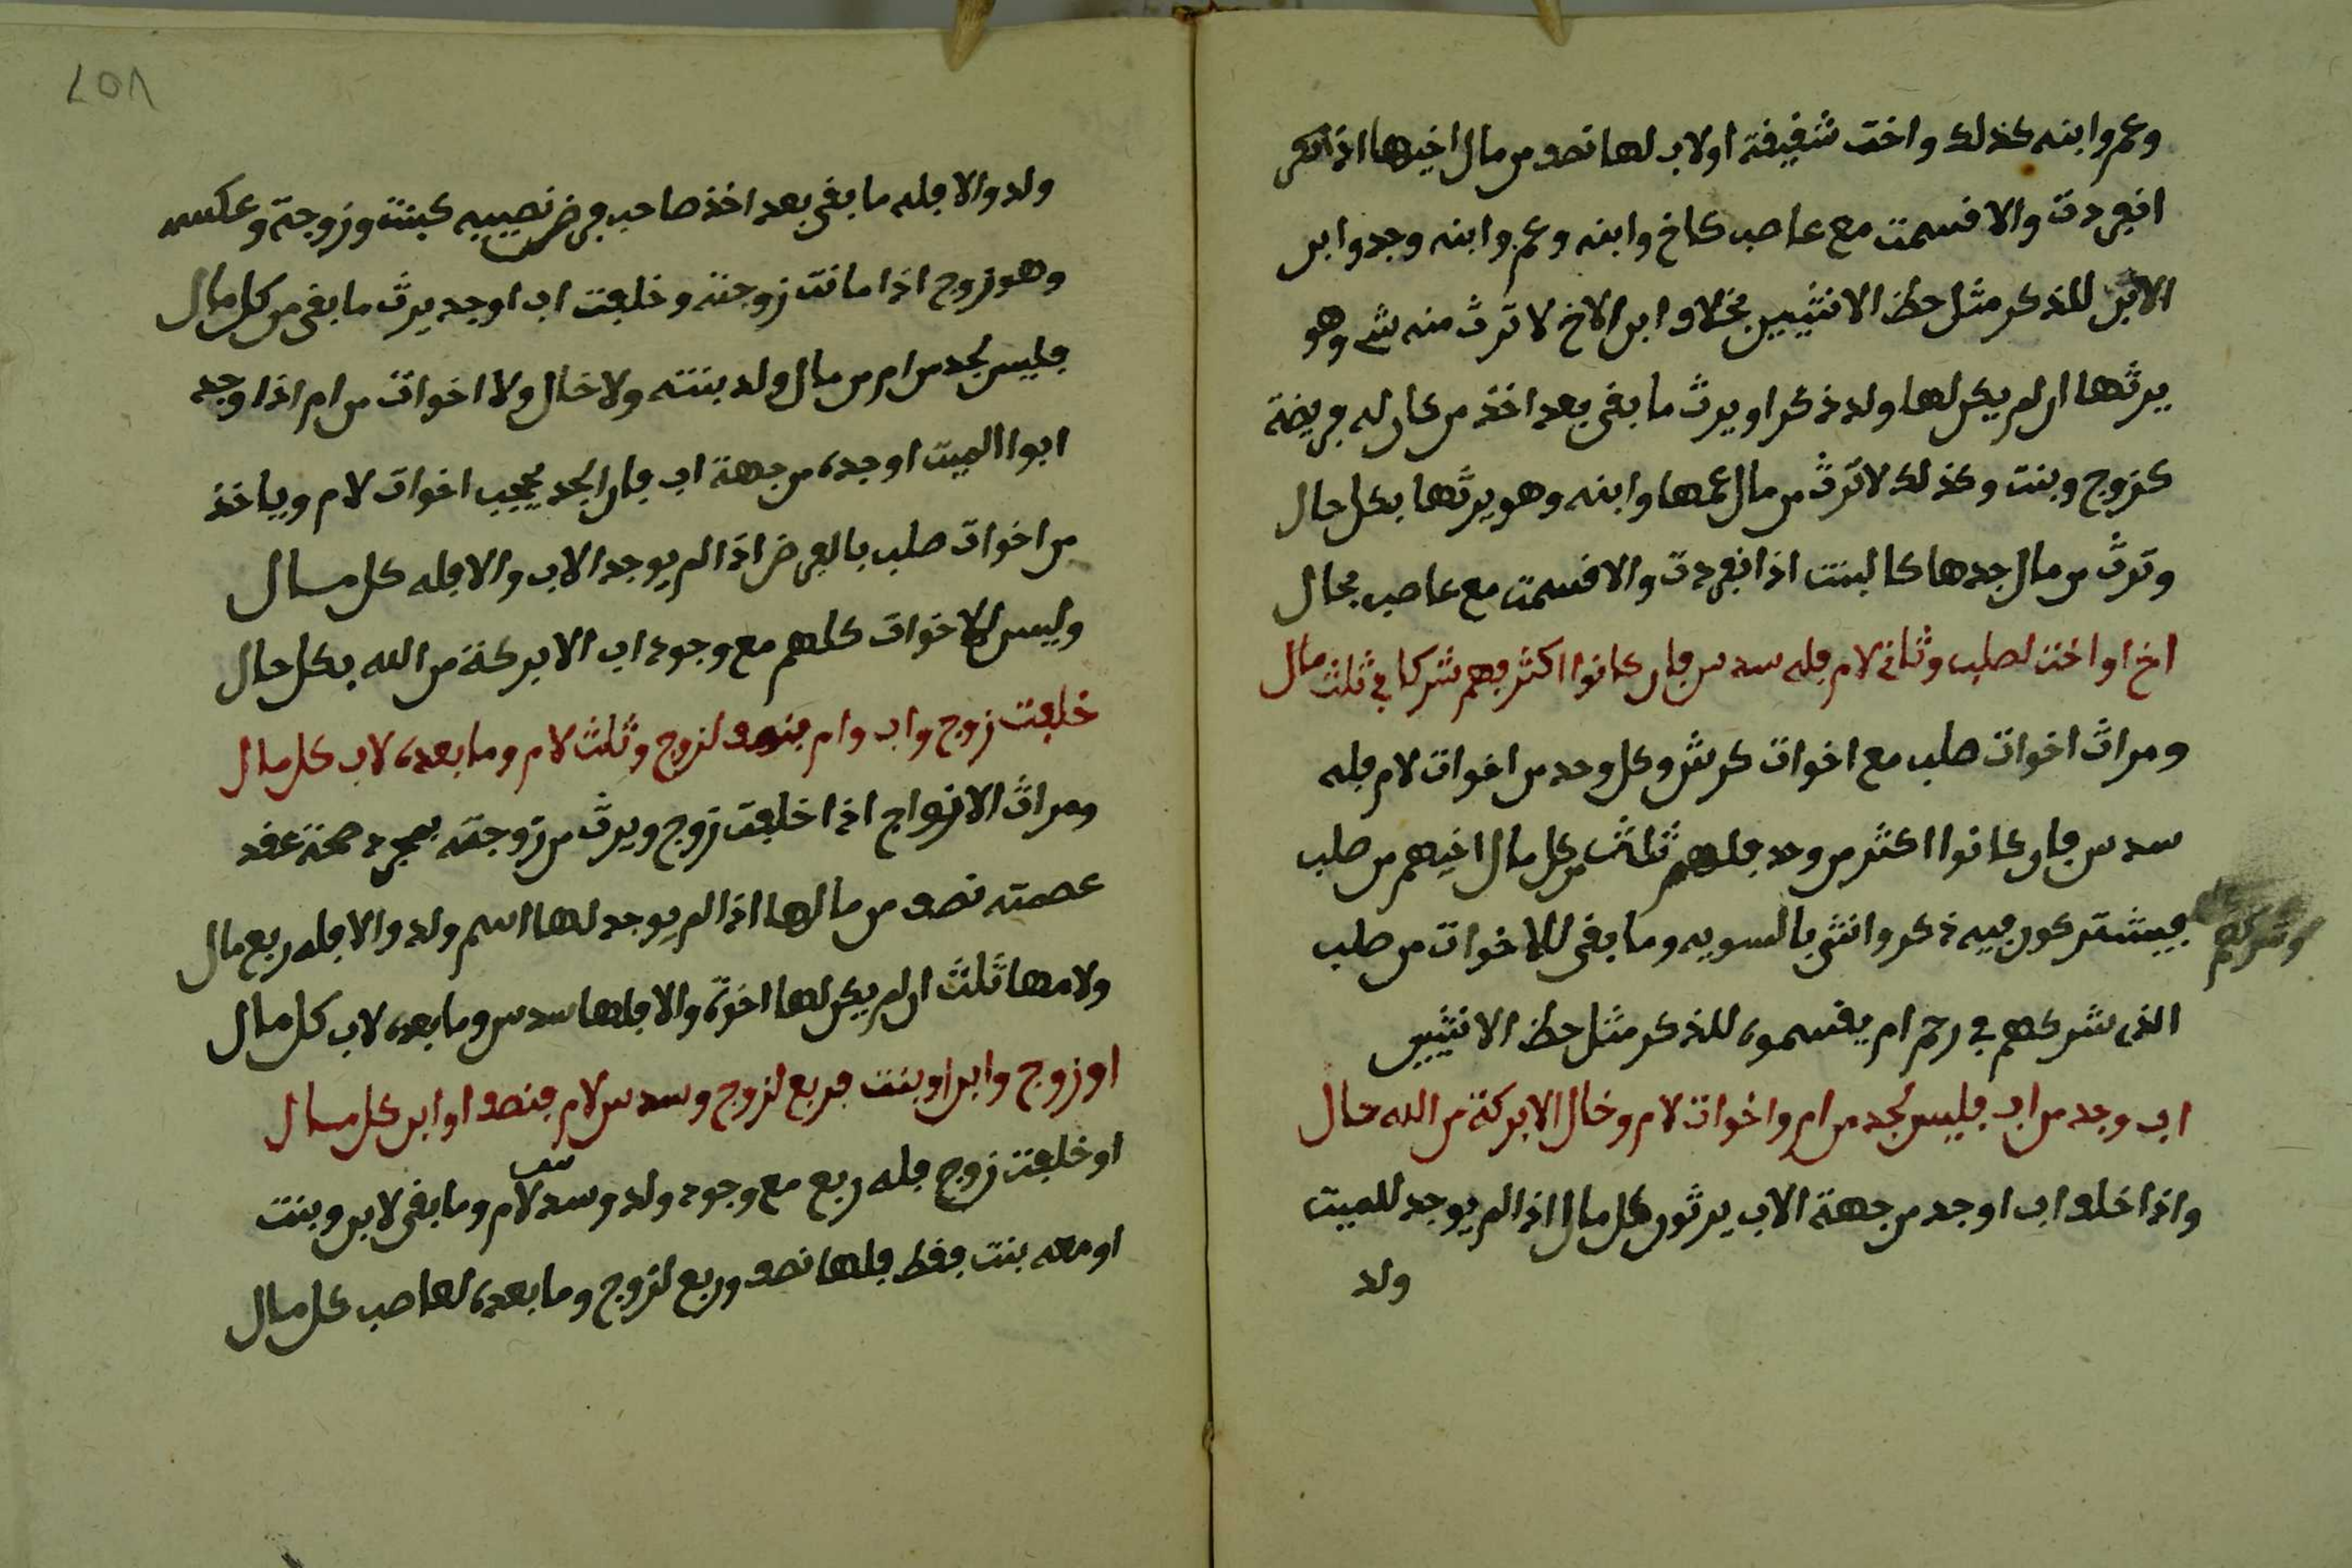 وعم وابنه كذلك واخت شقيقة اولاب لها نصف من مال اخيها اذا
انفردت والا قسمت مع عاصب كاخ وابنه وعم وابنه وجد وابن
الابن للذكر مثل حظ الانثيين بخلاف ابن الاخ لا ترث منه شي وهو
يرثها ان لم يكن لها ولد ذكر او يرث ما بقى بعد اخذ من كان له فريضة
كزوج وبنت وكذلك لا ترث من مال عمها وابنه وهو يرثها بكل حال
وترث من مال جدها كالبنت اذا انفردت والا قسمت مع عاصب بحال
اخ او اخت لصلب وثانى لام فله سدس فان كانوا اكثر فهم شركا في ثلث مال
ومراث اخوات صلب مع اخوات كرش وكل وحد من اخوات لام فله
سدس فان كانوا اكثر من وحد فلهم ثلث من كل مال اخيهم من صلب
فيشتركون فيه ذكر وانثى بالسويه وما بقى للاخوات من صلب
الذى شركهم في رحم ام يقسموه للذكر مثل حظ الانثيين
اب وجد من اب فليس لجد من ام واخوات لام وخال الا بركة من الله حال
واذا خلف اب او جد من جهة الاب يرثون كل مال اذا لم يوجد للميت
ولد
٢٥٨
ولد والا فله ما بقى بعد اخذ صاحب فرض نصيبيه كبنت وزوجة وعكسه
وهو زوج اذا ماتت زوجته وخلفت اب او جد يرث ما بقى من كل مال
فليس لجد من ام من مال ولد بنته ولا خال ولا اخوات من ام اذا وجد
ابوا الميت او جده من جهة اب فان الجد يحجب اخوات لام وياخذ
من اخوات صلب بالفرض اذا لم يوجد الاب والا فله كل مال
وليس للاخوات كلهم مع وجود اب الا بركة من الله بكل حال
خلفت زوج واب وام فنصف لزوج وثلث لام وما بعده لاب كل مال
ومراث الازواج اذا خلفت زوج ويرث من زوجته بمجرد صحة عقد
عصمته نصف من مالها اذا لم يوجد لها اسم ولد والا فله ربع مال
ولامها ثلث ان لم يكن لها اخوة والا فلها سدس وما بعده لاب كل مال
او زوج وابن او بنت فربع لزوج وسدس لام فنصف او ابن كل مال
او خلفت زوج فله ربع مع وجود ولد وسدس لام وما بقى لابن وبنت
او معه بنت فقط فلها نصف وربع لزوج وما بعده لعاصب كل مال